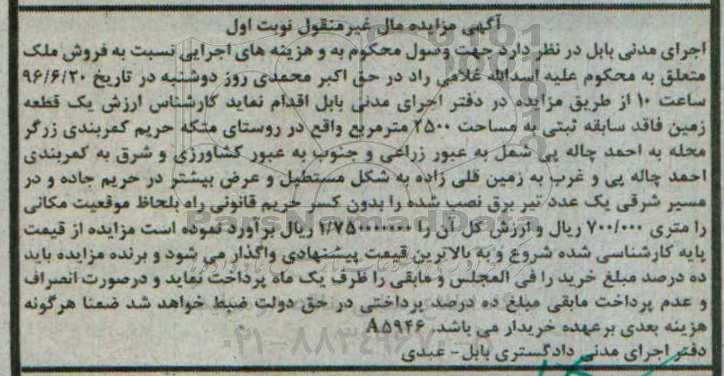 آگهی مزایده مال غیرمنقول نوبت اول
اجرای مدنی بابل در نظر دارد جهت وصول محکوم به و هزینه های اجرایی نسبت به فروش ملک
متعلق به محکوم علیه اسدالله غلامی راد در حق اکبر محمدی روز دوشنبه در تاریخ ۹۶/۶/۲۰
ساعت ۱۰ از طریق مزایده در دفتر اجرای مدنی بابل اقدام نماید کارشناس ارزش یک قطعه
زمین فاقد سابقه ثبتی به مساحت ۲۵۰۰ مترمربع واقع در روستای متکه حریم کمربندی زرگر
محله به احمد چاله پی شمل به عبور زراعی و جنوب به عبور کشاورزی و شرق به کمربندی
احمد چاله پی و غرب به زمین قلی زاده به شکل مستطیل و عرض بیشتر در حریم جاده و در
مسیر شرقی یک عدد تیر برق نصب شده را بدون کسر حریم قانونی راه بلحاظ موقعیت مکانی
را متری ۷۰۰/۰۰۰ ریال و ارزش کل آن را ۱/۷۵۰۰۰۰۰۰۰ ریال برآورد نموده است مزایده از قیمت
پایه کارشناسی شده شروع و به بالاترین قیمت پیشنهادی واگذار می شود و برنده مزایده باید
ده درصد مبلغ خرید را فی المجلس و مابقی را ظرف یک ماه پرداخت نماید و درصورت انصراف
و عدم پرداخت مابقی مبلغ ده درصد پرداختی در حق دولت ضبط خواهد شد ضمنا هرگونه
هزینه بعدی برعهده خریدار می باشد. A۵۹۴۶
دفتر اجرای مدنی دادگستری بابل- عبدی
ParsNamadData